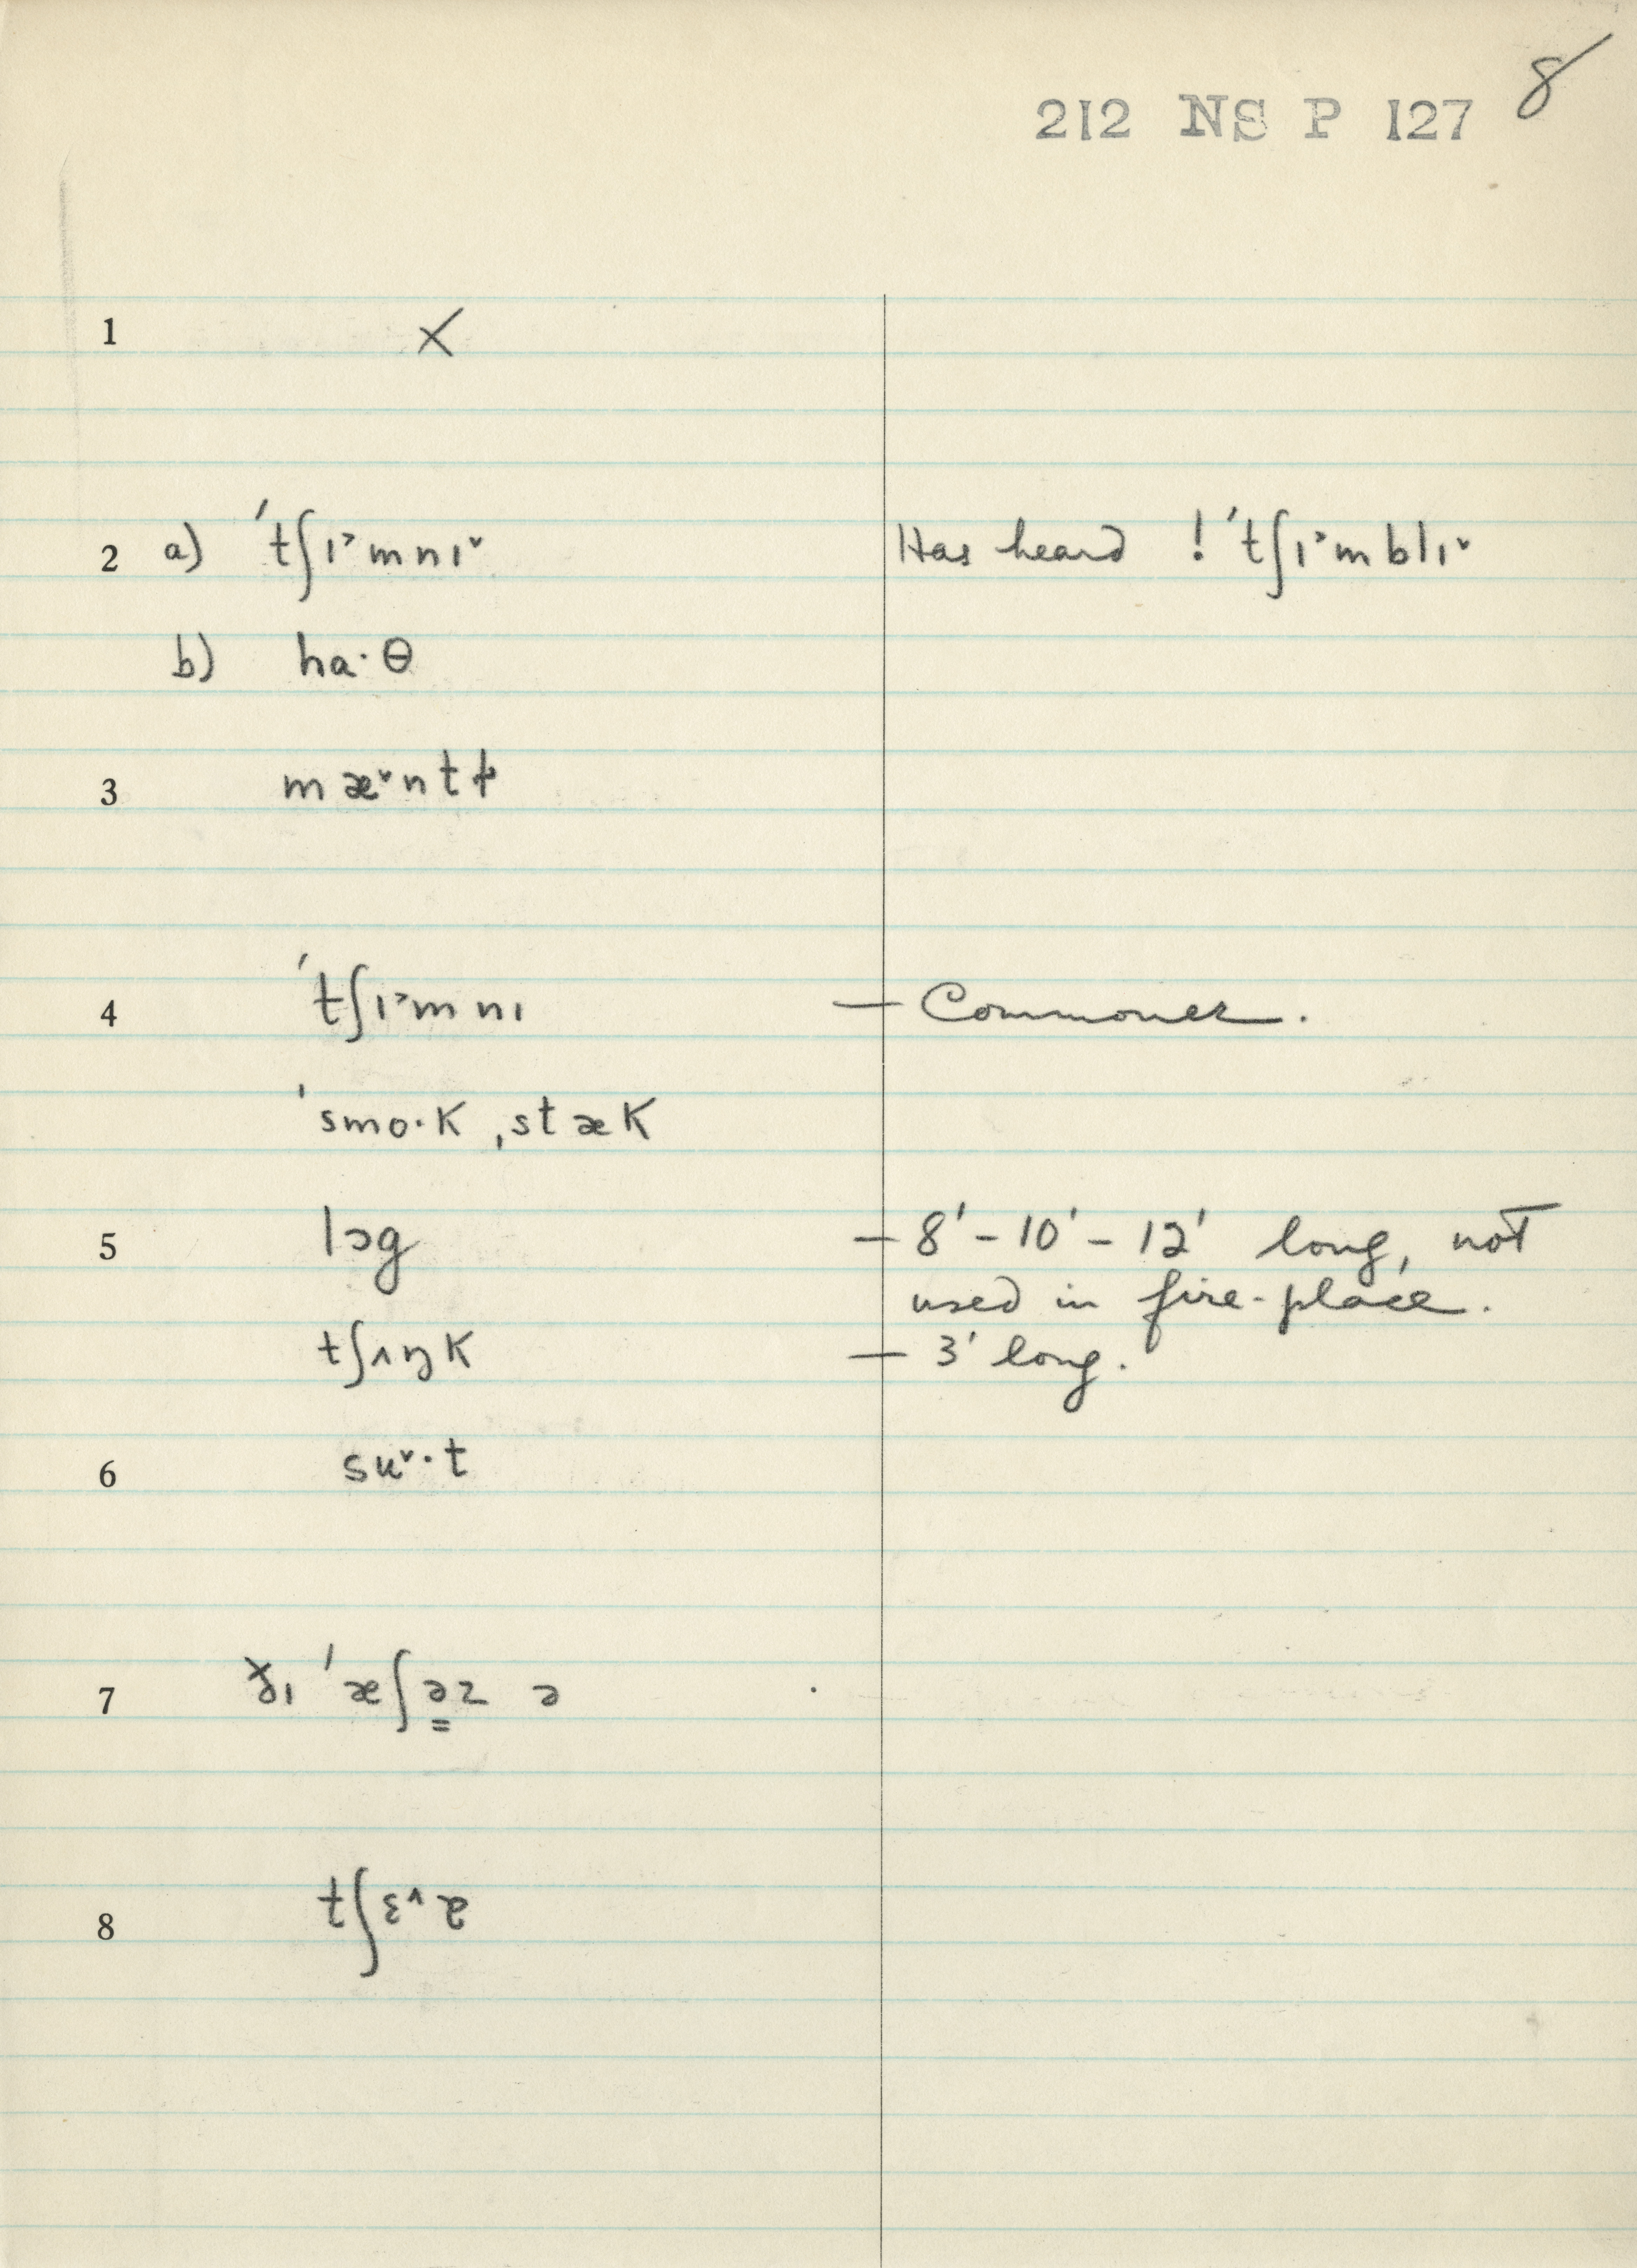 8
212 NS P 127
1 ×
2 a) ˈtʃɪ˃mnɪ˅ Has heard ! ˈtʃɪ˃mblɪ˅
b) ha·θ
3 mæ˅ntɫ
4 ˈtʃɪ˃mnɪ — Commoner.
ˈsmo·k ˌstæk
5 lɔg — 8' – 10' – 12' long, not
used in fire-place.
tʃʌŋk — 3' long.
6 su˅·t
7 ðɪ ˈæʃə̳z ə
8 tʃɛ˄ɚ